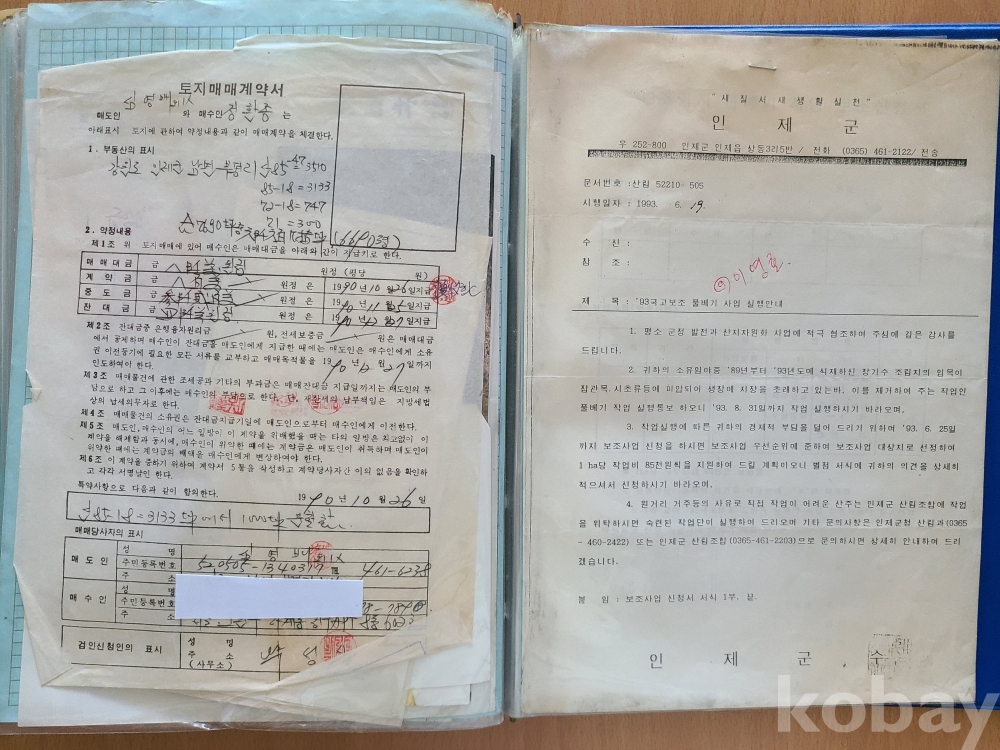 토지매매계약서
매도인 와 매수인 는
아래표시 토지에 관하여 약정내용과 같이 매매계약을 체결한다.
1. 부동산의 표시
강원도 인제군 남면 부평리
85-18=3133
72-18=747
71=300
2. 약정내용
제1조 위 토지매매에 있어 매수인은 매매대금을 아래와 같이 지급키로 한다.
매매대금 금 원정 (평당 원)
계약금 금 원정은 1990년 10월 26일지급
중도금 금 원정은 19 년 11월 일지급
잔대금 금 원정은 1990년 12월 27일지급
제2조 잔대금중 은행융자원리금 원, 전세보증금 원은 매매대금
에서 공제하며 매수인이 잔대금을 매도인에게 지급한 때에는 매도인은 매수인에게 소유
권 이전등기에 필요한 모든 서류를 교부하고 매매목적물을 1990년 12월 27일까지
인도하여야 한다.
제3조 매매물건에 관한 조세공과 기타의 부과금은 매매잔대금 지급일까지는 매도인의 부
담으로 하고 그 이후에는 매수인의 부담으로 한다. 단, 재산세의 납부책임은 지방세법
상의 납세의무자로 한다.
제4조 매매물건의 소유권은 잔대금지급기일에 매도인으로부터 매수인에게 이전한다.
제5조 매도인, 매수인의 어느 일방이 이 계약을 위배했을 때는 타의 일방은 최고없이 이
계약을 해제함과 동시에, 매수인이 위약한 때에는 계약금은 매도인이 취득하며 매도인이
위약한 때에는 계약금의 배액을 매수인에게 변상하여야 한다.
제6조 이 계약을 증하기 위하여 계약서 5통을 작성하고 계약당사자간 이의 없음을 확인하
고 각각 서명날인 한다.
특약사항으로 다음과 같이 합의한다. 1990년 10월 26일
85-18=3133
매매당사자의 표시
매도인 성명
주민등록번호 520505-1340317 461-6238
주소
매수인 성명
주민등록번호
주소
검인신청인의 표시 성명
주소
(사무소)
"새질서새생활실천"
인 제 군
우 252-800 인제군 인제읍 상동3리5반 / 전화 (0365) 461-2122/ 전송
문서번호 : 산림 52210- 505
시행일자 : 1993. 6. 19.
수 신 :
참 조 :
이영호
제 목 : '93국고보조 풀베기 사업 실행안내
1. 평소 군정 발전과 산지자원화 사업에 적극 협조하여 주심에 깊은 감사를
드립니다.
2. 귀하의 소유임야중 '89년부터 '93년도에 식재하신 장기수 조림지의 임목이
잡관목, 시초류등에 피압되어 생장에 지장을 초래하고 있는바, 이를 제거하여 주는 작업인
풀베기 작업 실행통보 하오니 '93. 8. 31일까지 작업 실행하시기 바라오며,
3. 작업실행에 따른 귀하의 경제적 부담을 덜어 드리기 위하여 '93. 6. 25일
까지 보조사업 신청을 하시면 보조사업 우선순위에 준하여 보조사업 대상지로 선정하여
1 ha당 작업비 85천원씩을 지원하여 드릴 계획이오니 별첨 서식에 귀하의 의견을 상세히
적으셔서 신청하시기 바라오며,
4. 원거리 거주등의 사유로 직접 작업이 어려운 산주는 인제군 산림조합에 작업
을 위탁하시면 숙련된 작업단이 실행하여 드리오며 기타 문의사항은 인제군청 산림과(0365
- 460-2422) 또는 인제군 산림조합(0365-461-2203)으로 문의하시면 상세히 안내하여 드리
겠습니다.
붙 임 : 보조사업 신청서 서식 1부. 끝.
인 제 군 수
kobay